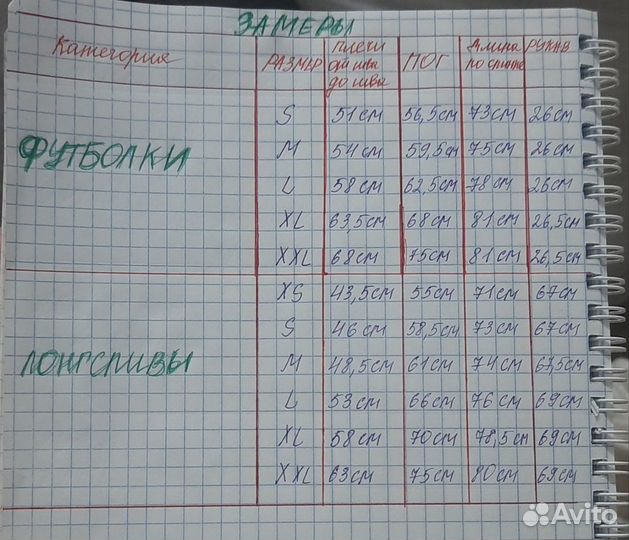 ЗАМЕРЫ
Категория РАЗМЕР Плечи от шва до шва ПОГ Длина по спинке РУКАВ
S 51см 56,5см 73см 26см
ФУТБОЛКИ M 54см 59,5см 75см 26см
L 58см 62,5см 78см 26см
XL 63,5см 68см 81см 26,5см
XXL 68см 75см 81см 26,5см
XS 43,5см 55см 71см 67см
S 46см 58,5см 73см 67см
ЛОНГСЛИВЫ M 48,5см 61см 74см 67,5см
L 53см 66см 76см 69см
XL 58см 70см 78,5см 69см
XXL 63см 75см 80см 69см
Avito